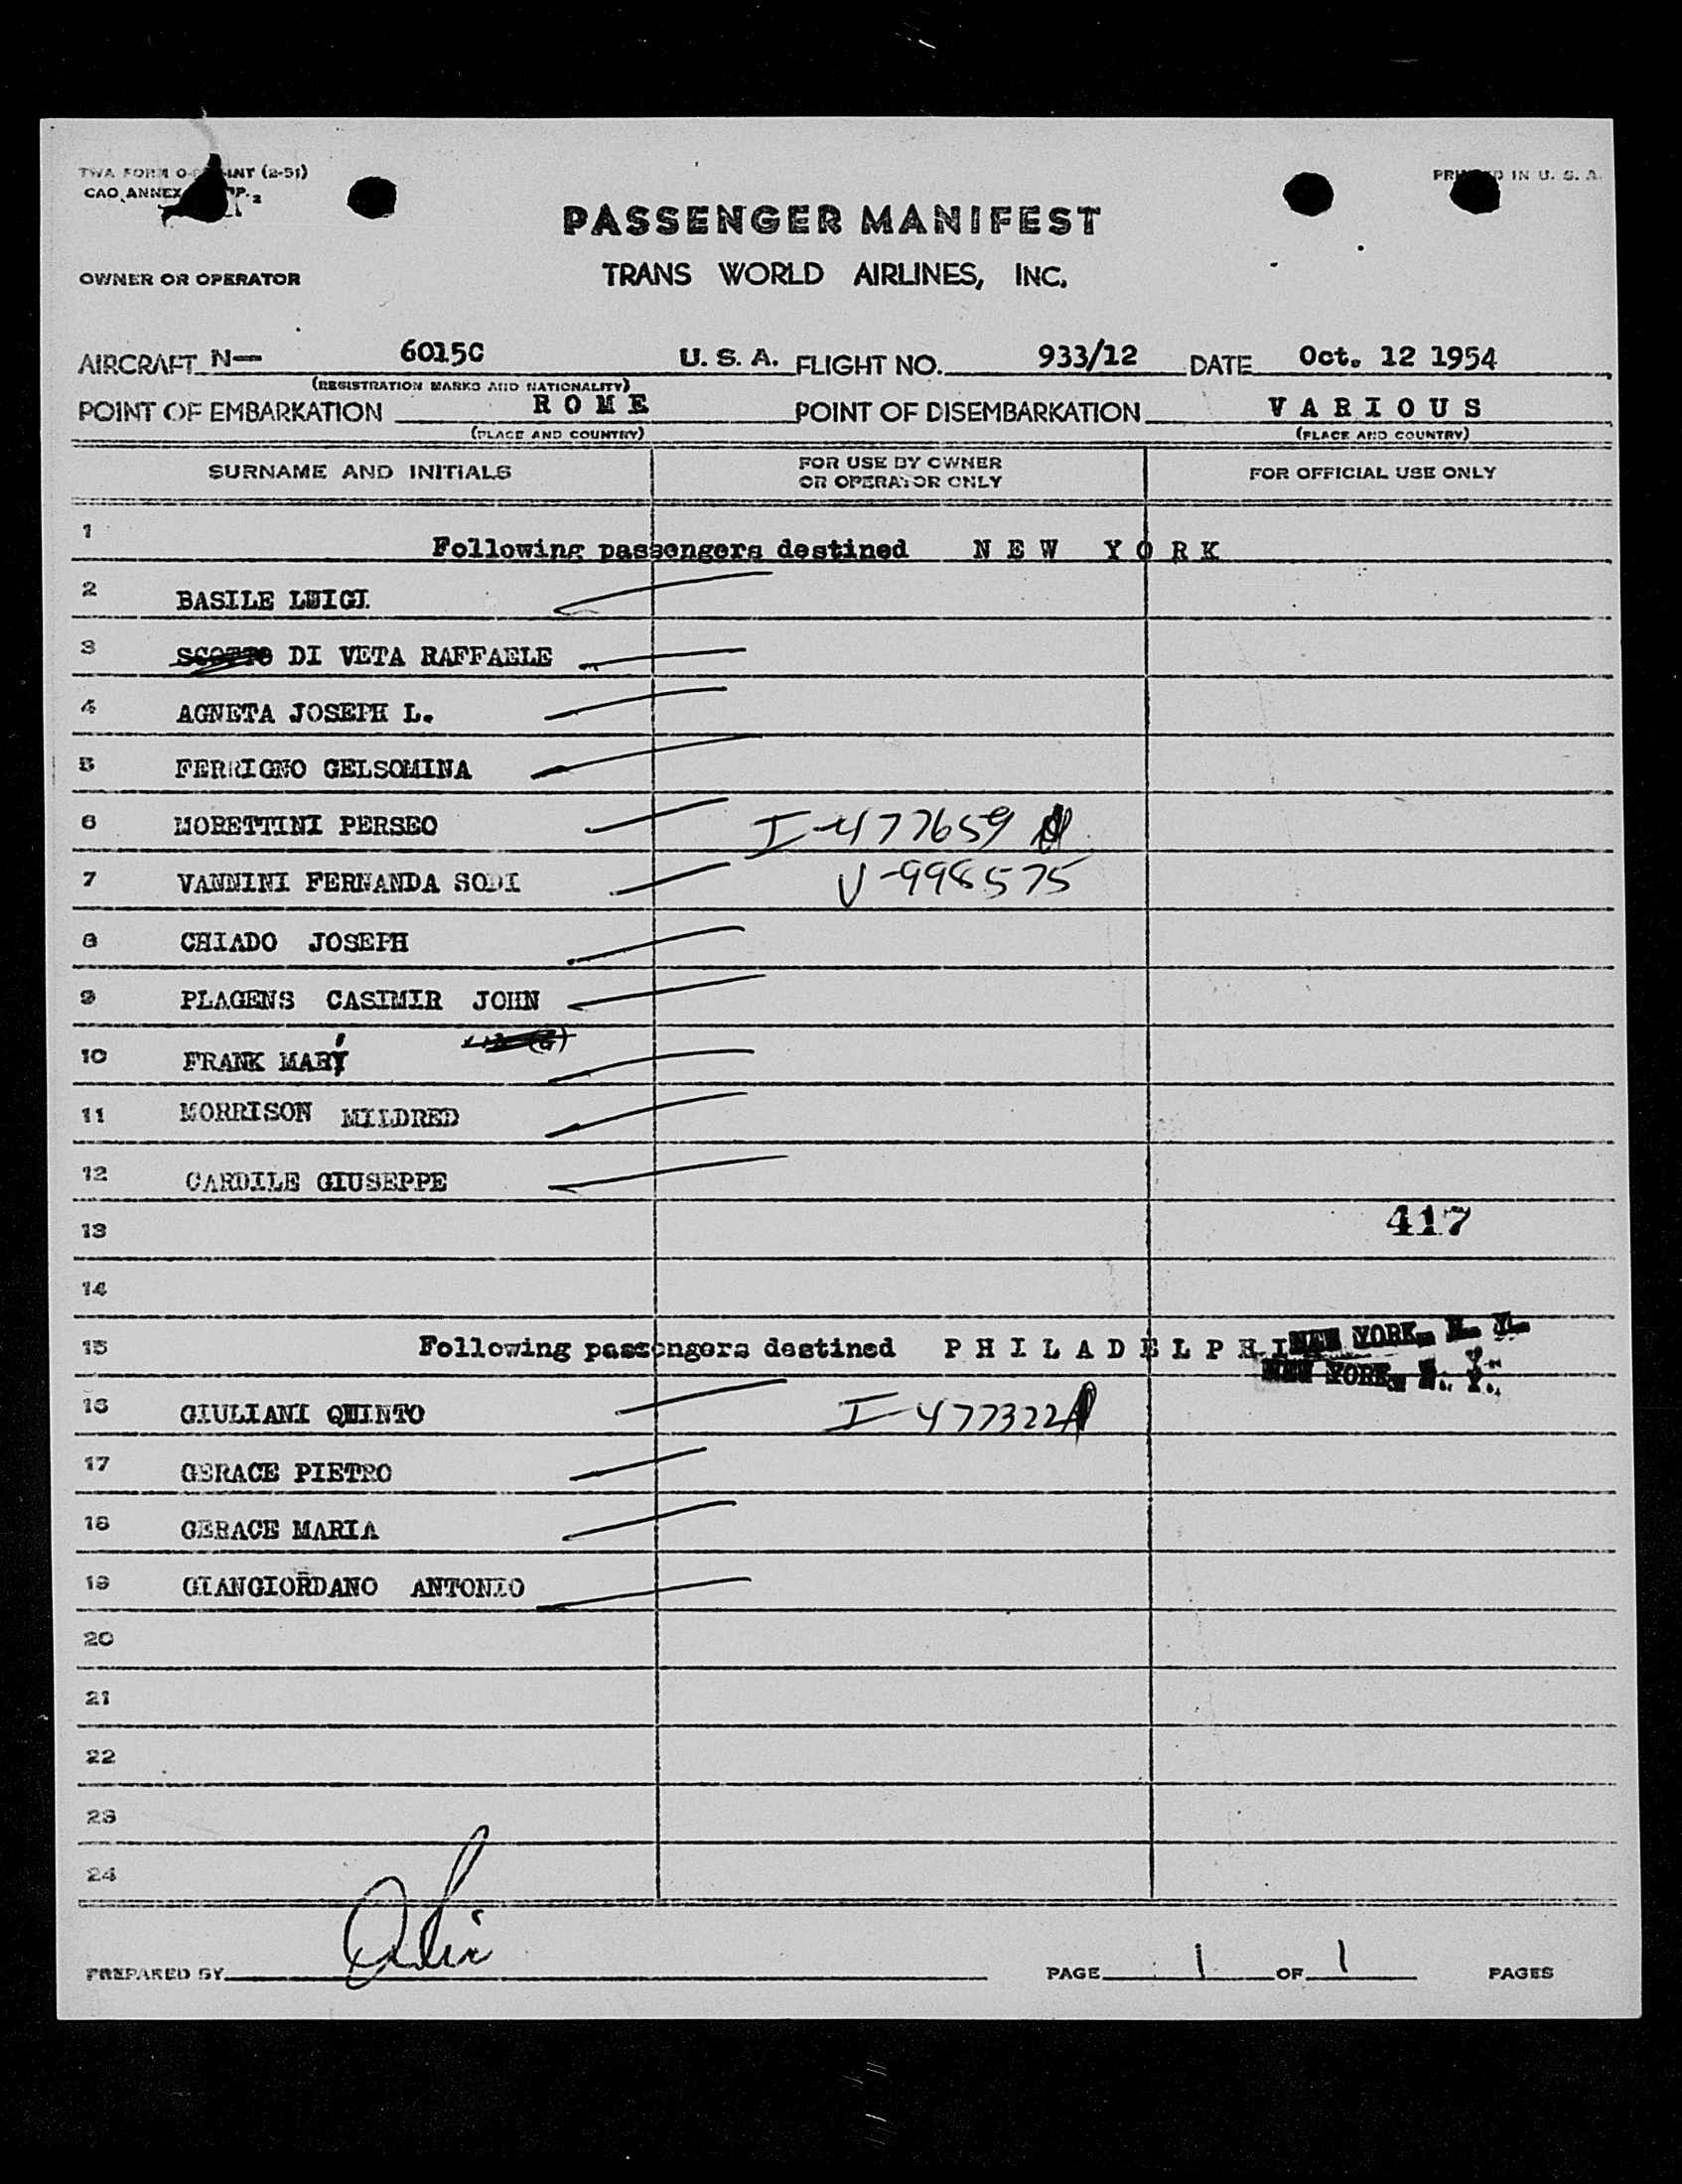 TWA FORM O- INT (2-51)
PRINTED IN U. S. A.
CAO ANNEX
PASSENGER MANIFEST
OWNER OR OPERATOR TRANS WORLD AIRLINES, INC.
AIRCRAFT N— 6015C U. S. A. FLIGHT NO. 933/12 DATE Oct. 12 1954
(REGISTRATION MARKS AND NATIONALITY)
POINT OF EMBARKATION ROME POINT OF DISEMBARKATION VARIOUS
(PLACE AND COUNTRY) (PLACE AND COUNTRY)
SURNAME AND INITIALS FOR USE BY OWNER OR OPERATOR ONLY FOR OFFICIAL USE ONLY
1 Following passengers destined NEW YORK
2 BASILE LUIGI
3 SCOTTO DI VETA RAFFAELE
4 AGNETA JOSEPH L.
5 FERRIGNO GELSOMINA
6 MORETTINI PERSEO I-477659
7 VANNINI FERNANDA SODI V-998575
8 CHIADO JOSEPH
9 PLAGENS CASIMIR JOHN
10 FRANK MARY
11 MORRISON MILDRED
12 CARDILE GIUSEPPE
13 417
14
15 Following passengers destined PHILADELPHI
NEW YORK, N. Y.
NEW YORK, N. Y.
16 GIULIANI QUINTO I-477322
17 GERACE PIETRO
18 GERACE MARIA
19 GIANGIORDANO ANTONIO
20
21
22
23
24
PREPARED BY PAGE 1 OF 1 PAGES